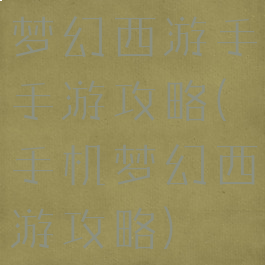 梦幻西游手
手游攻略(
手机梦幻西
游攻略)